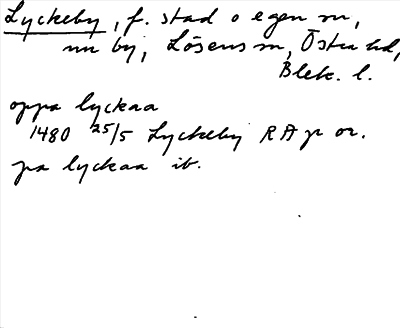 Lyckeby, f. stad o egen sn,
nu by, Lösens sn, Östra hd,
Blek. l.
oppa lyckaa
1480 25/5 Lyckeby RA p or.
pa lyckaa ib.